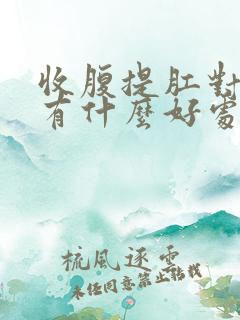 收腹提肛對
有什麼好處
梳風逐雲
未经同意禁止转载